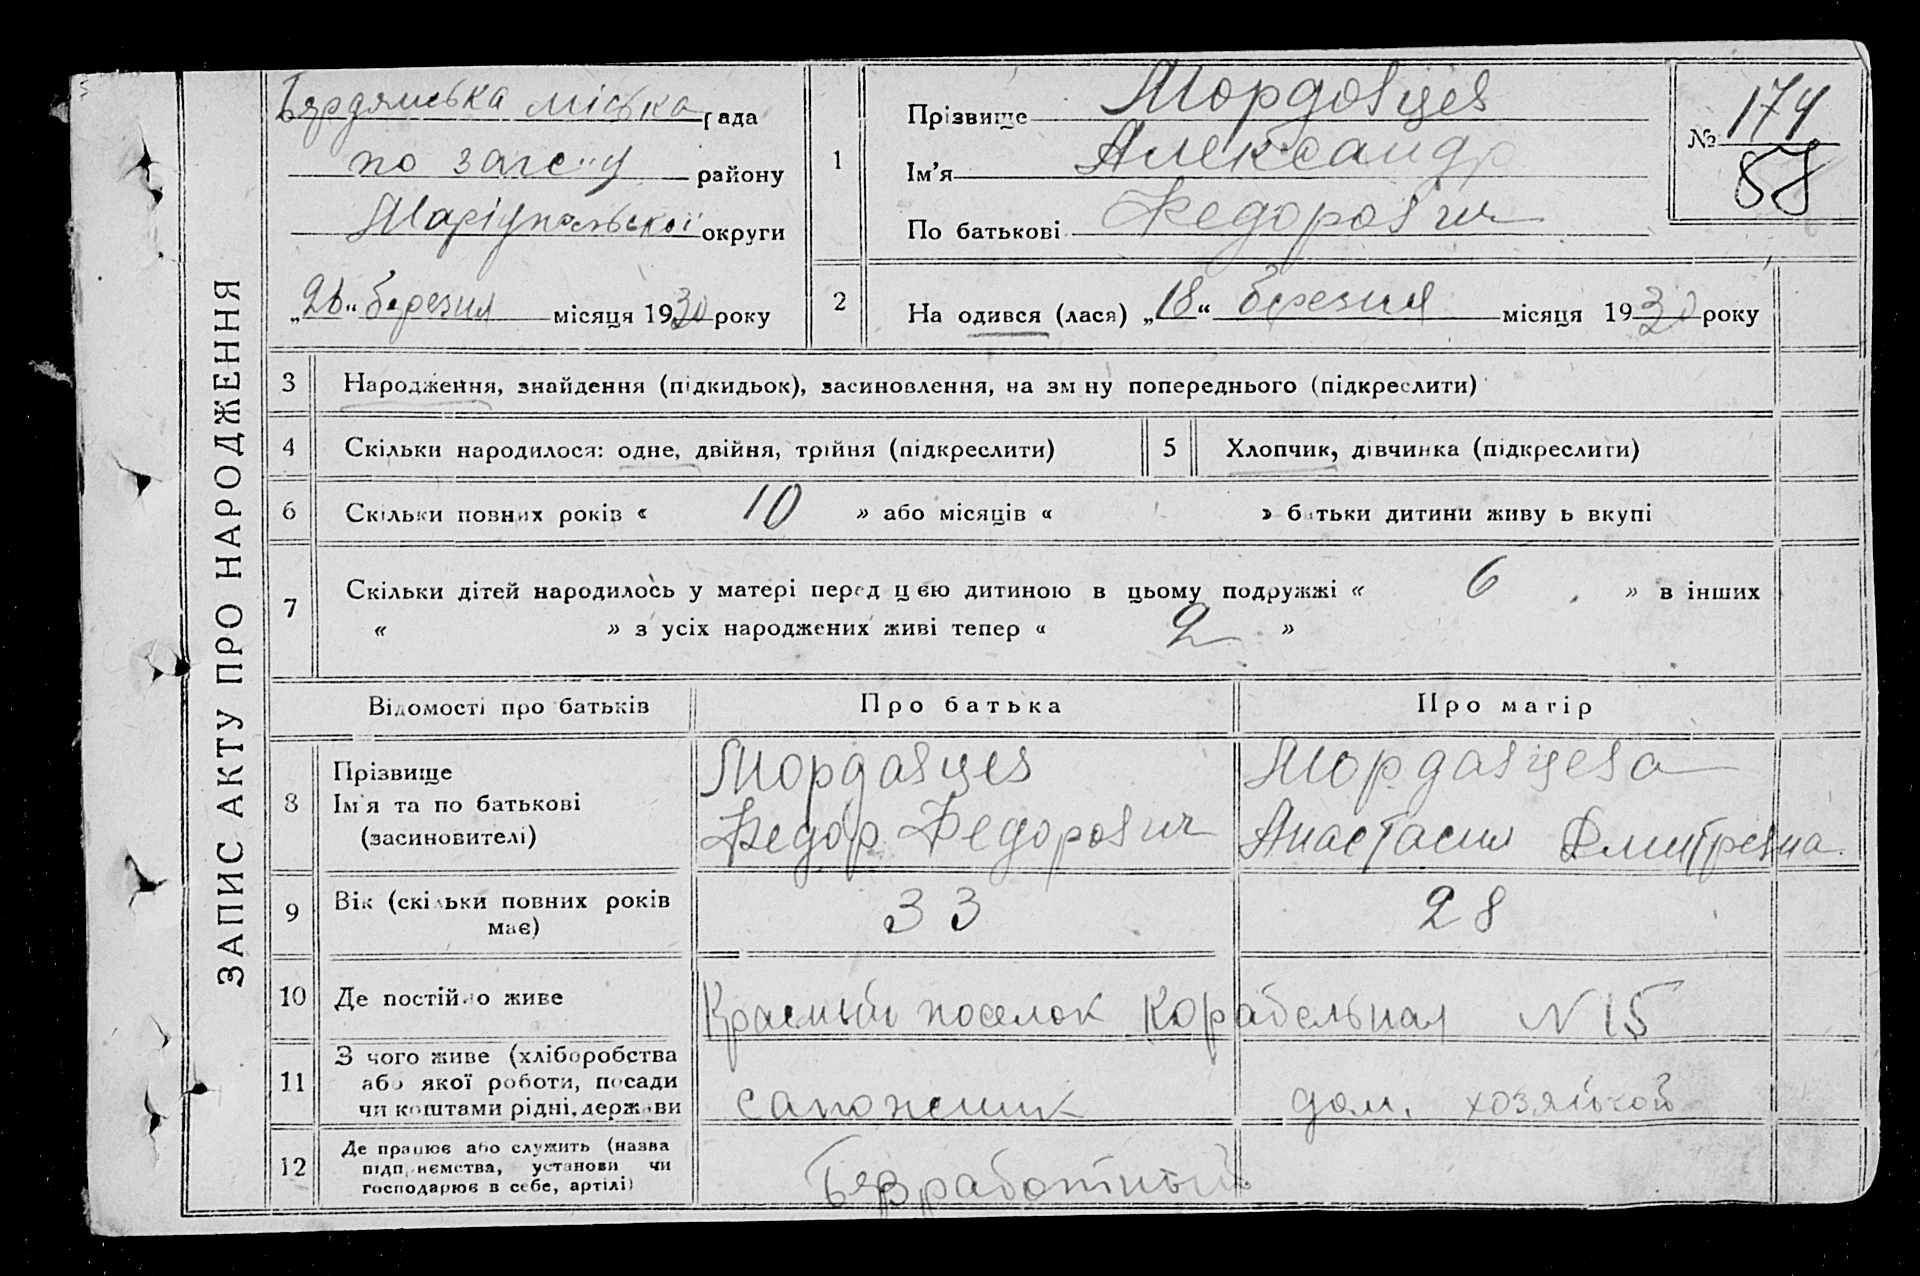 ЗАПИС АКТУ ПРО НАРОДЖЕННЯ
Бердянська міська рада
по загс"у району
Маріупольської округи
„26“ березня місяця 1930 року
1
Прізвище Мордовцев
Ім'я Александр
По батькові Федорович
№ 174
2
На одився (лася) „18“ березня місяця 1930 року
3 Народження, знайдення (підкидьок), засиновлення, на зм ну попереднього (підкреслити)
4 Скільки народилося: одне, двійня, трійня (підкреслити)
5 Хлопчик, дівчинка (підкреслити)
6 Скільки повних років « 10 » або місяців « » батьки дитини живу ь вкупі
7 Скільки дітей народилось у матері перед цею дитиною в цьому подружжі « 6 » в інших
« » з усіх народжених живі тепер « 2 »
Відомості про батьків Про батька Про матір
8 Прізвище
Ім'я та по батькові
(засиновителі)
Мордовцев
Федор Федорович
Мордовцева
Анастасия Дмитревна
9 Вік (скільки повних років
має)
33 28
10 Де постійно живе Красный поселок Корабельная N 15
11 З чого живе (хліборобства
або якої роботи, посади
чи коштами рідні, держави
сапожник дом. хозяйкой
12 Де працює або служить (назва
підприємства, установи чи
господарює в себе, артілі)
Безработный